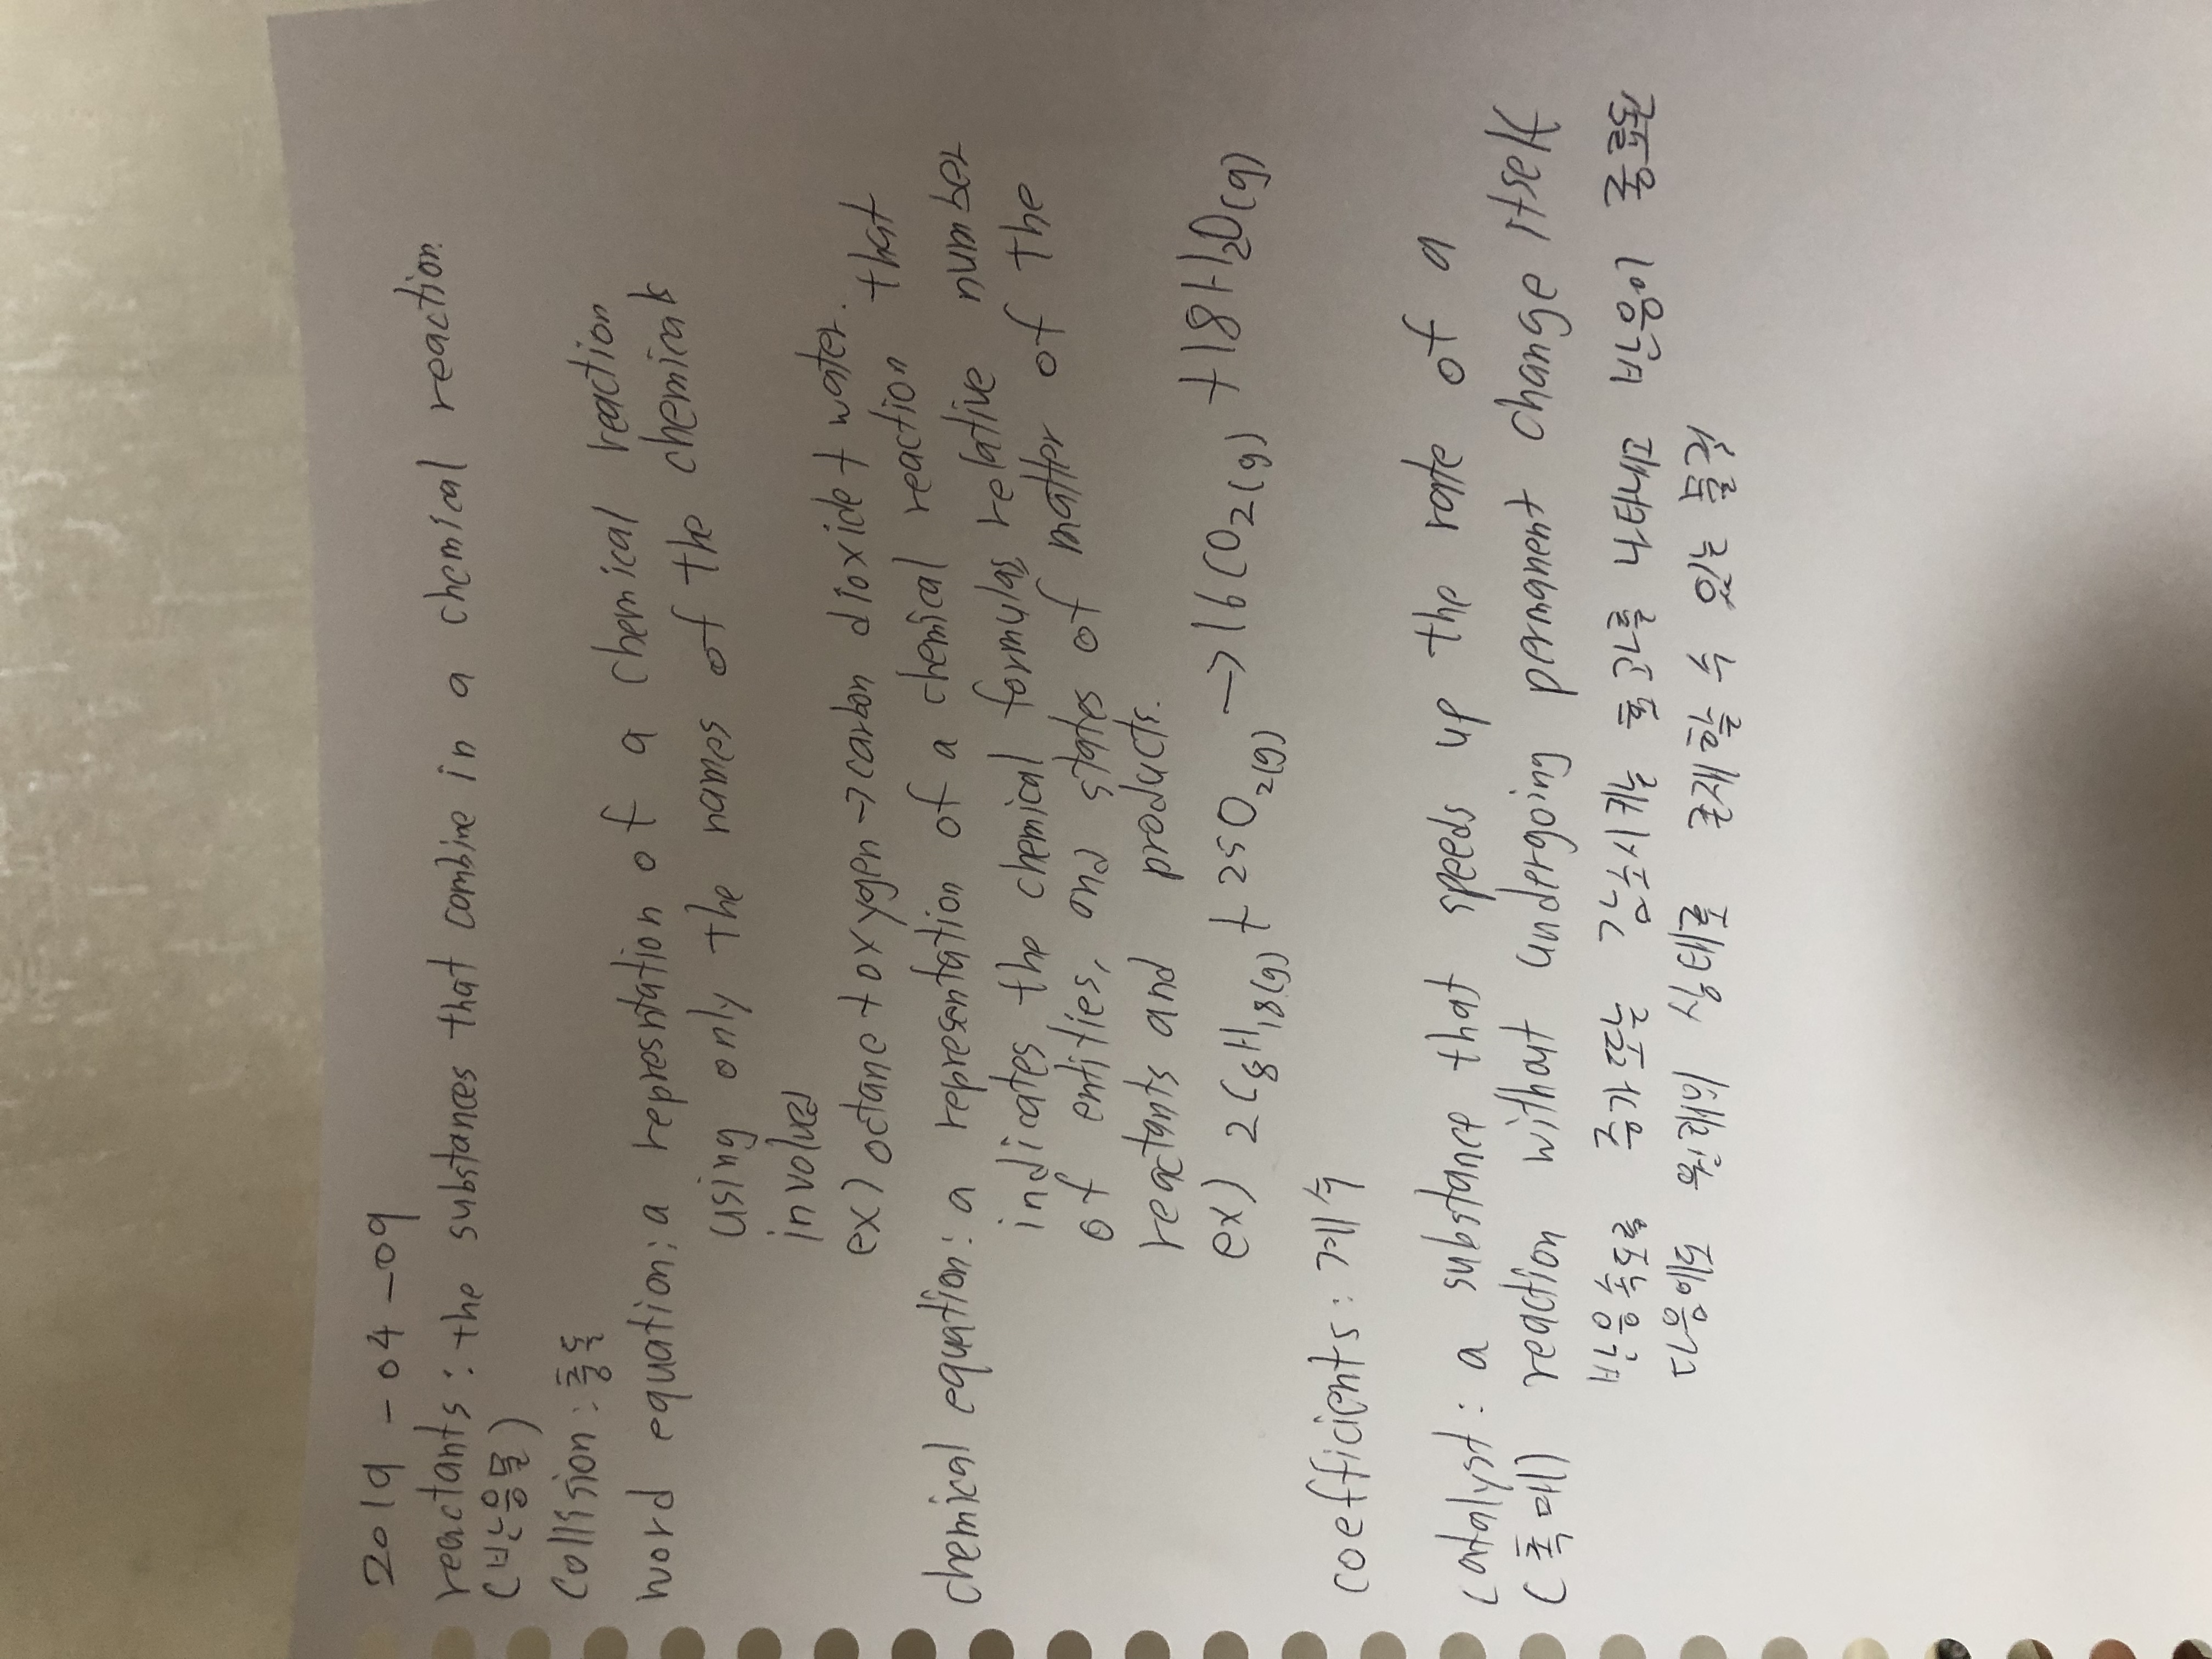 2019-04-09
reactants : the substances that combine in a chemical reaction.
(반응물)
Collision : 충돌
word equation : a represntation of a chemical reaction
using only the names of the chemicals
involved
ex) octane + oxygen → carbon dioxide + water.
chemical equation : a representation of a chemical reaction that
indicates the chemical formulas relative number
of entities, and states of matter of the
reactants and products.
ex) 2C8H18(g) + 25O2(g) → 16CO2(g) + 18H2O(g)
coefficients : 계수
catalyst : a substance that speeds up the rate of a
(촉매) reaction without undergoing permanent change itself
반응속도를 증가 혹은 감소시키는 효과를 나타내며 반응이 종료된
다음에도 원래의 상태로 존재할 수 있는 물질